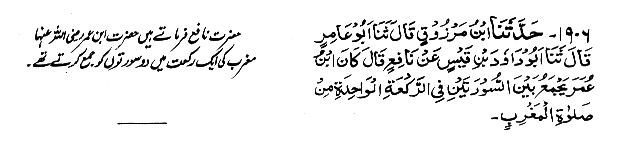 ۱۹۰۶- حَدَّثَنَا ابْنُ مَرْزُوْقٍ قَالَ ثَنَا اَبُوْعَامِرٍ
قَالَ ثَنَا اَبُوْدَاوٗدَ بْنِ قَيْسٍ عَنْ نَافِعٍ قَالَ كَانَ ابْنُ
عُمَرَ يَجْمَعُ بَيْنَ السُّوْرَتَيْنِ فِي الرَّكْعَةِ الْوَاحِدَةِ مِنْ
صَلٰوةِ الْمَغْرِبِ۔
حضرت نافع فرماتے ہیں حضرت ابن عمر رضی اللہ عنہا
مغرب کی ایک رکعت میں دو سورتوں کو جمع کرتے تھے۔